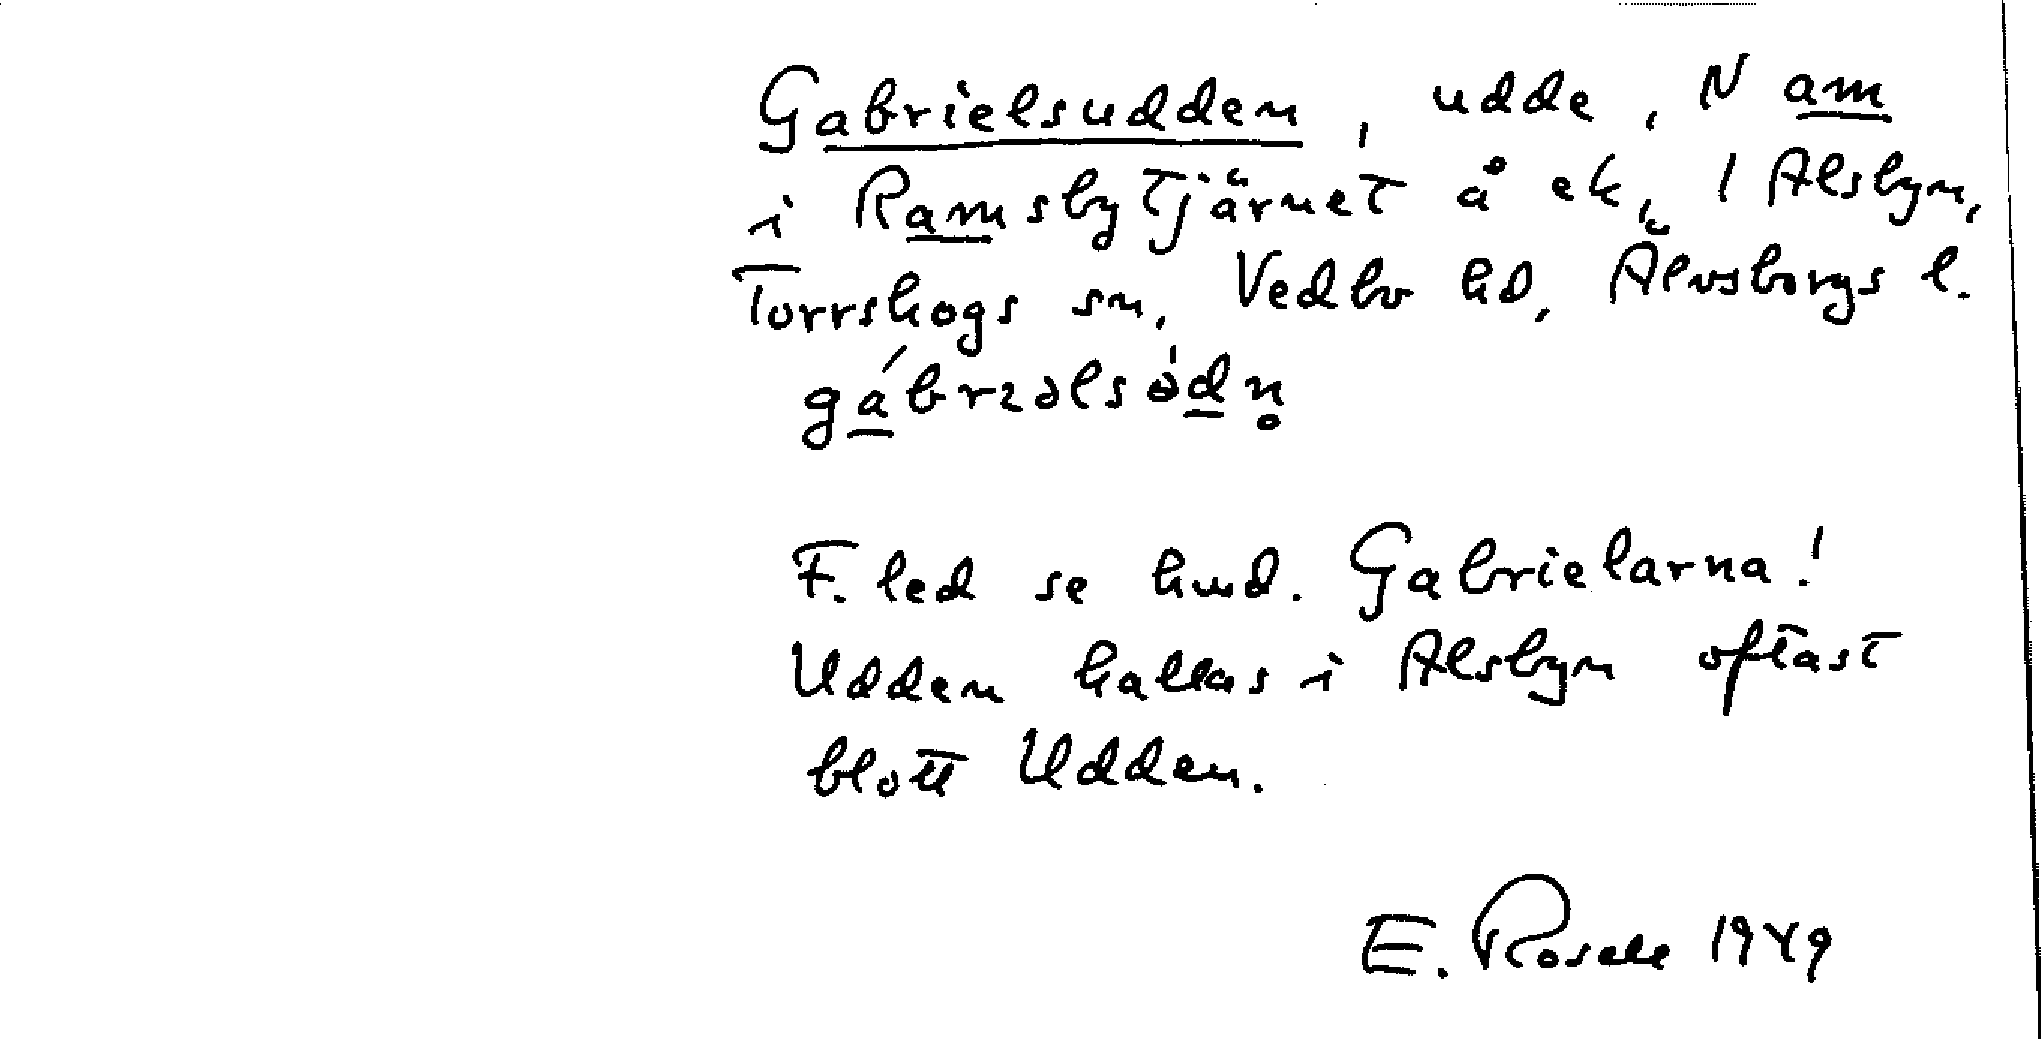 Gabrielsudden, udde, N am
i Ramsbytjärnet å ek, 1 Alsbyn,
Torrskogs sn, Vedbo hd, Älvsborgs l.
F. led se kmd. Gabrielarna!
Udden kallas i Alsbyn oftast
blott Udden.
E. Rosell 1949